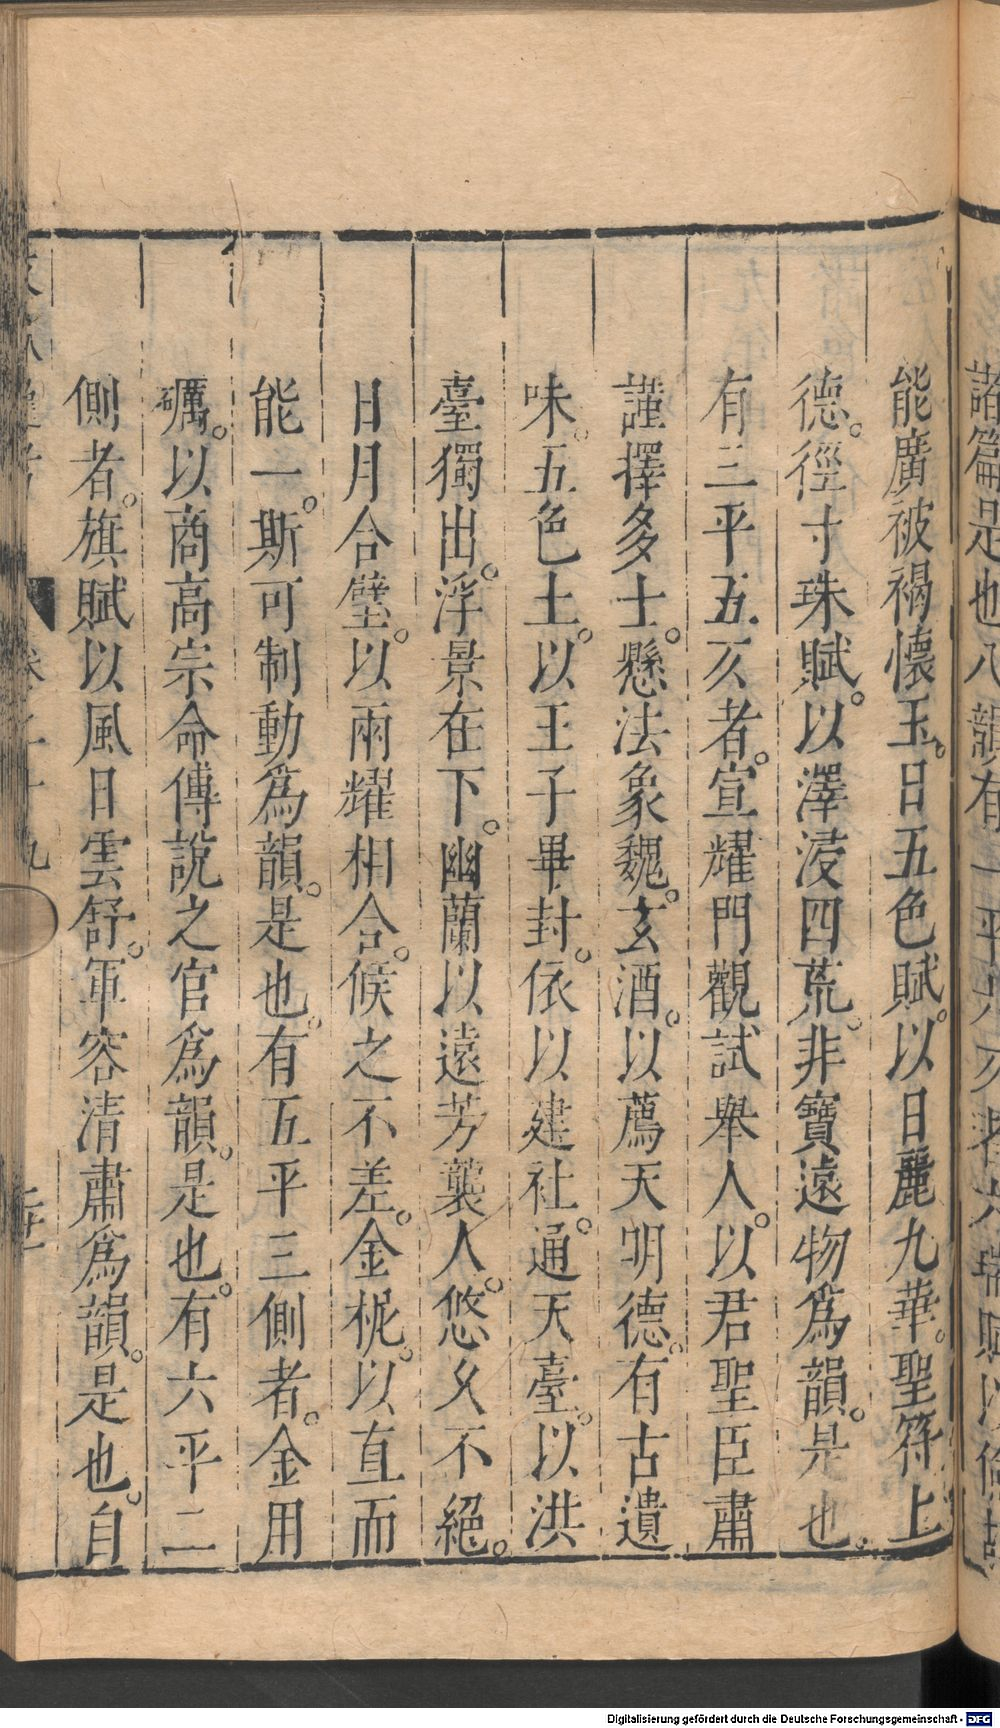 諸篇是也八韻有二平六
能廣被褐懷玉。日五色賦。以日麗九華。聖符上
德。徑寸珠賦。以澤浸四荒。非寶遠物爲韻。是也。
有三平五仄者。宣耀門觀試舉人。以君聖臣肅
謹擇多士。懸法象魏。玄酒。以薦天明德。有古遺
味。五色土。以王子畢封。依以建社。通天臺。以洪
臺獨出。浮景在下。幽蘭以遠芳襲人。悠久不絕。
日月合璧。以兩耀相合。候之不差。金柅。以直而
能一。斯可制動爲韻。是也。有五平三側者。金用
礪。以商高宗命傅說之官爲韻。是也。有六平二
側者。旗賦以風日雲舒。軍容清肅爲韻。是也。自
Digitalisierung gefördert durch die Deutsche Forschungsgemeinschaft - DFG